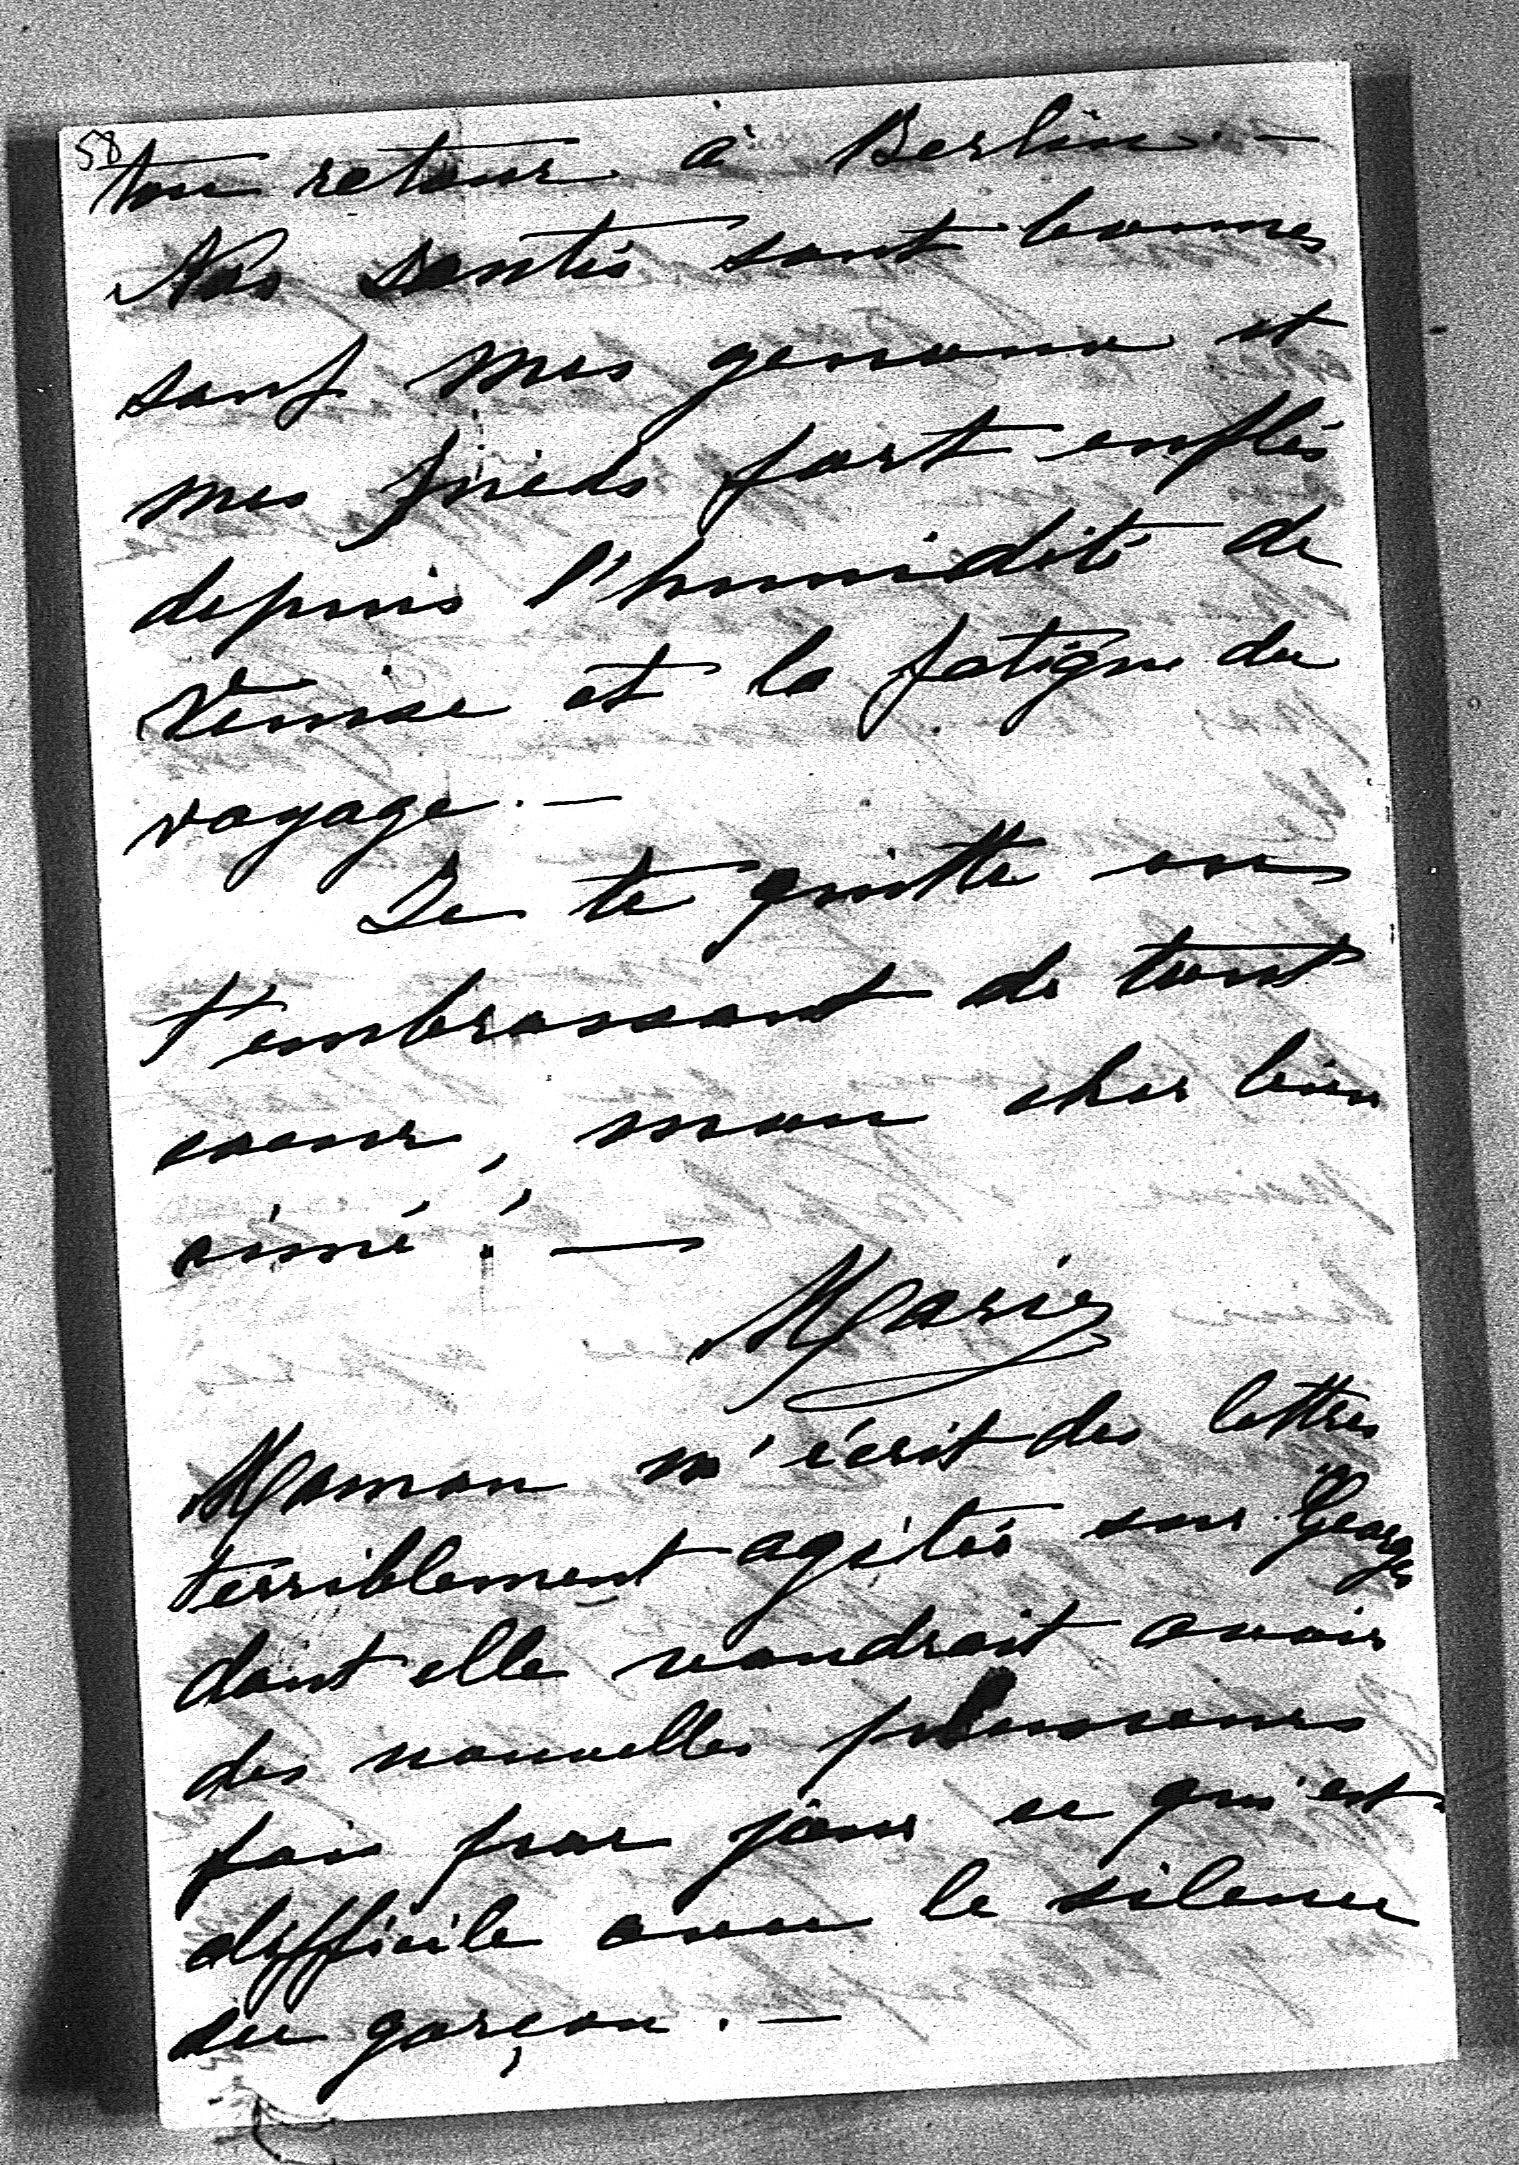 58
ton retour à Berlin. —
Nos santés sont bonnes
sauf mes genoux et
mes pieds fort enflés
depuis l'humidité de
Venise et la fatigue du
voyage. —
Je te quitte en
t'embrassant de tout
coeur, mon cher bien
aimé! —
Marie
Maman m'écrit des lettres
terriblement agitées sur Georges
dont elle voudrait avoir
des nouvelles plusieurs
fois par jour ce qui est
difficile avec le silence
du garçon. —